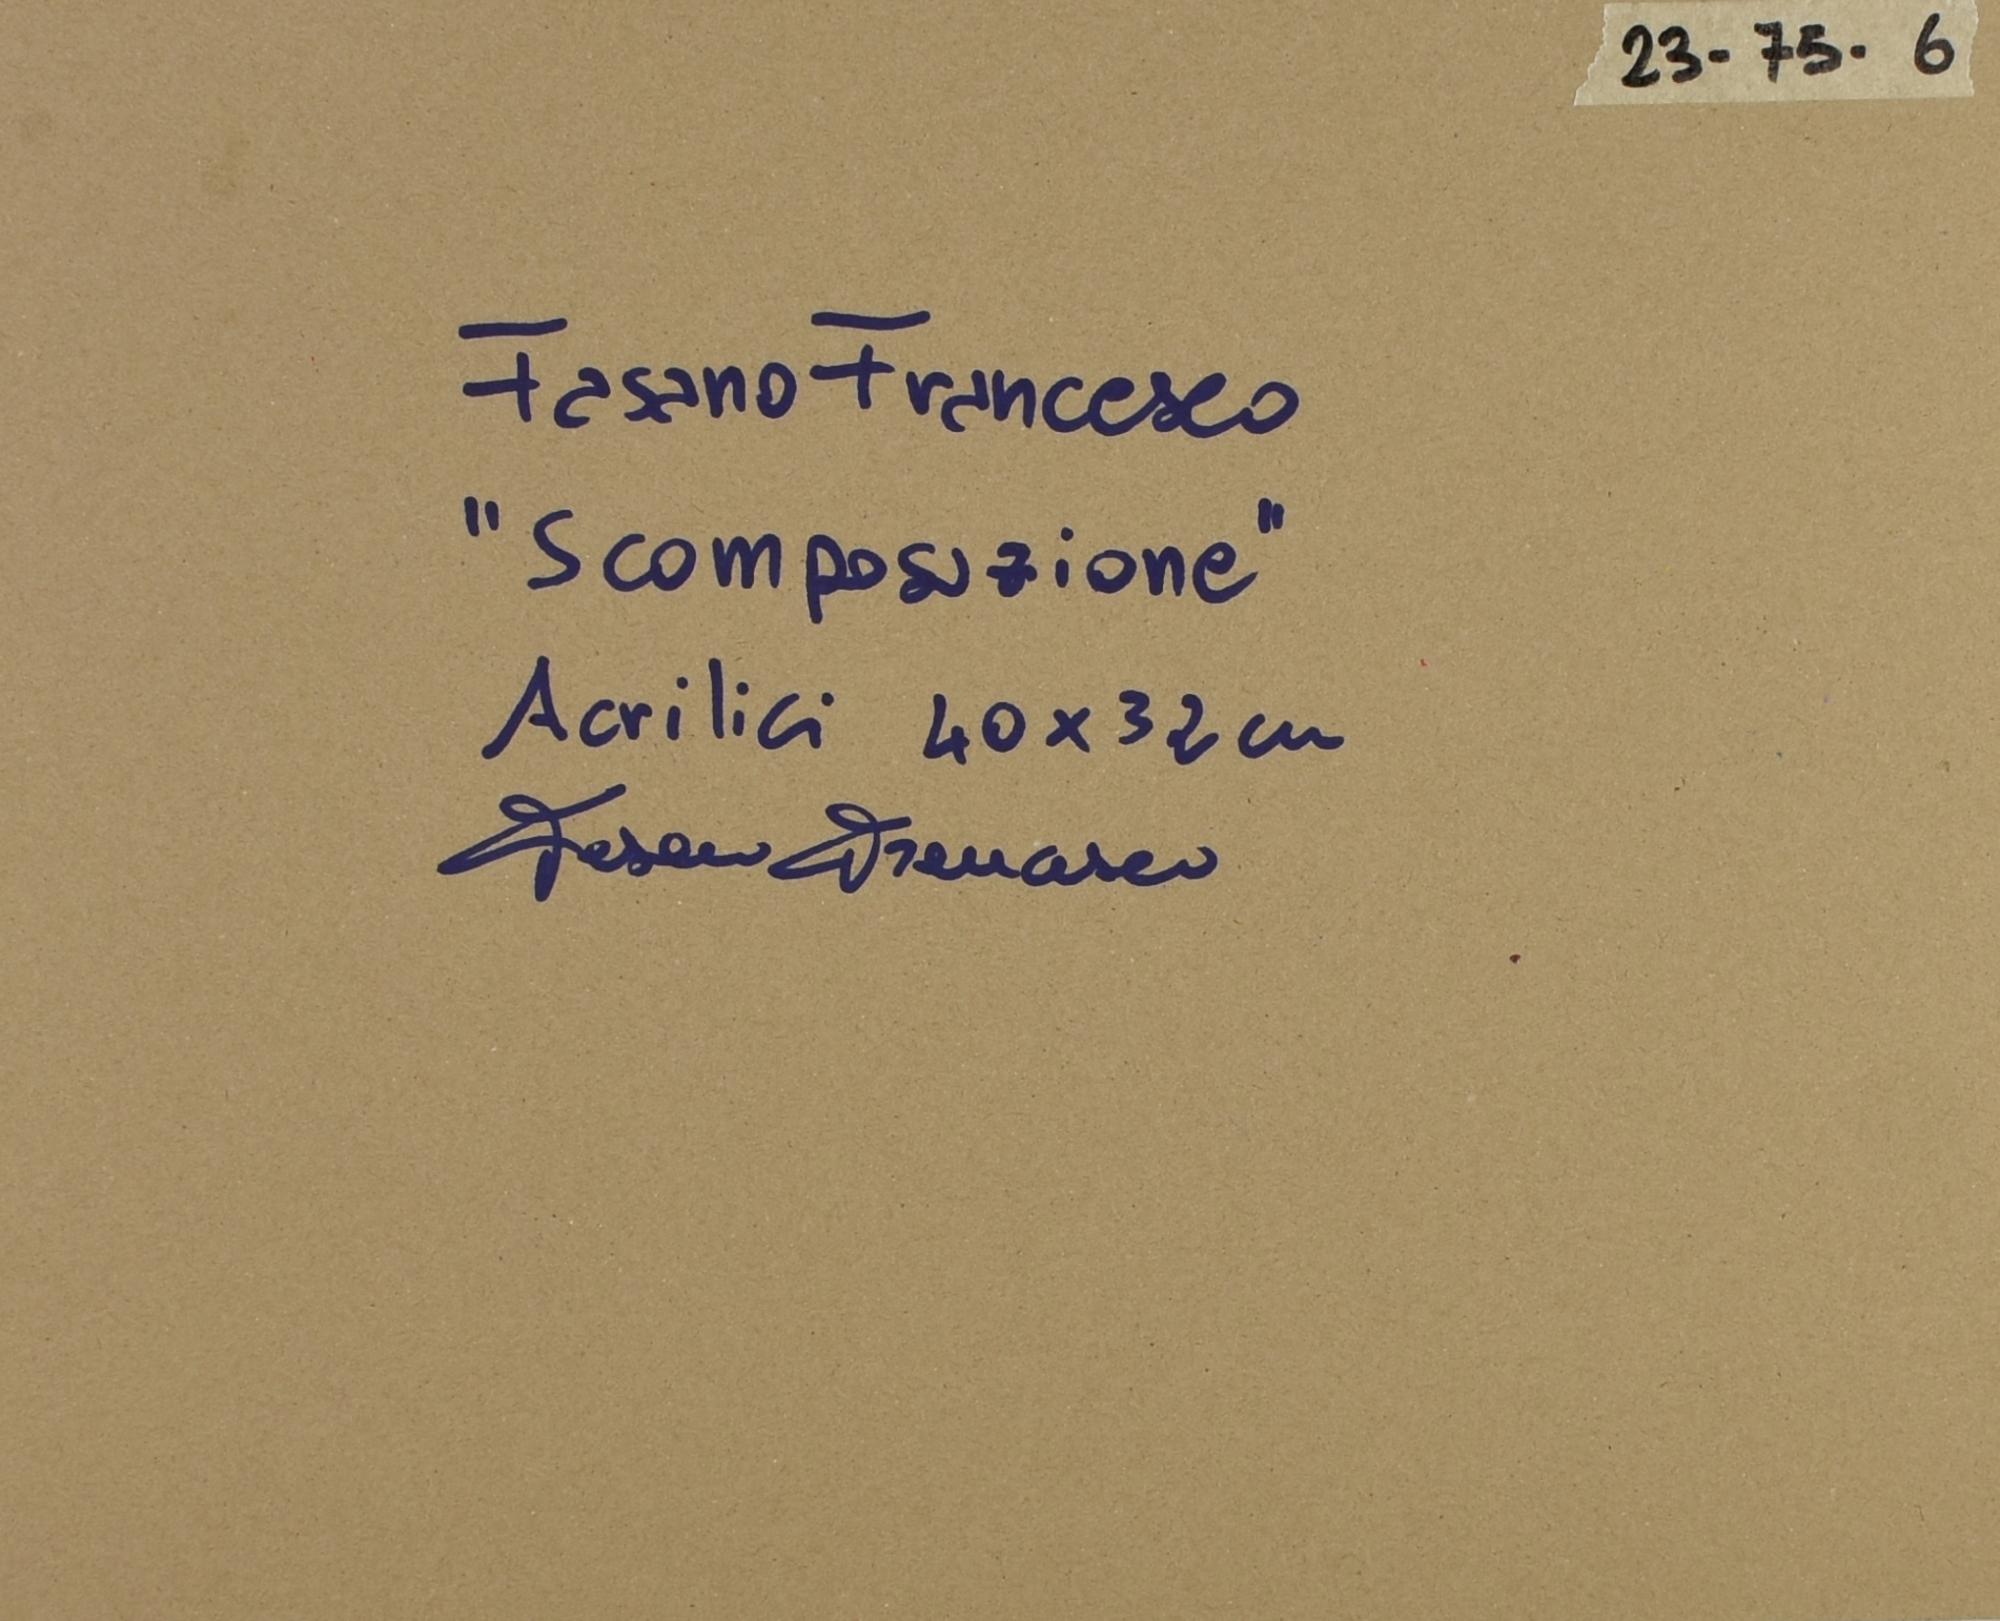 23-75-6
Fasano Francesco
"Scomposizione"
Acrilici 40x32cm
Fasano Francesco